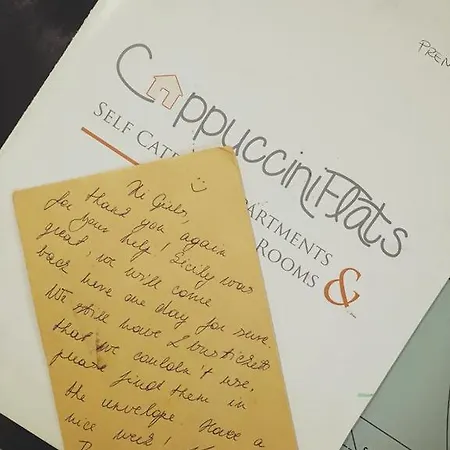 PREN
Cappuccini Flats
SELF CATE
PARTMENTS
ROOMS
&
Hi Girls,
thank you again
for your help! Sicily was
great, we will come
back here one day for sure.
We still have 2 bustickets
that we couldn't use,
please find them in
the envelope. Have a
nice week!